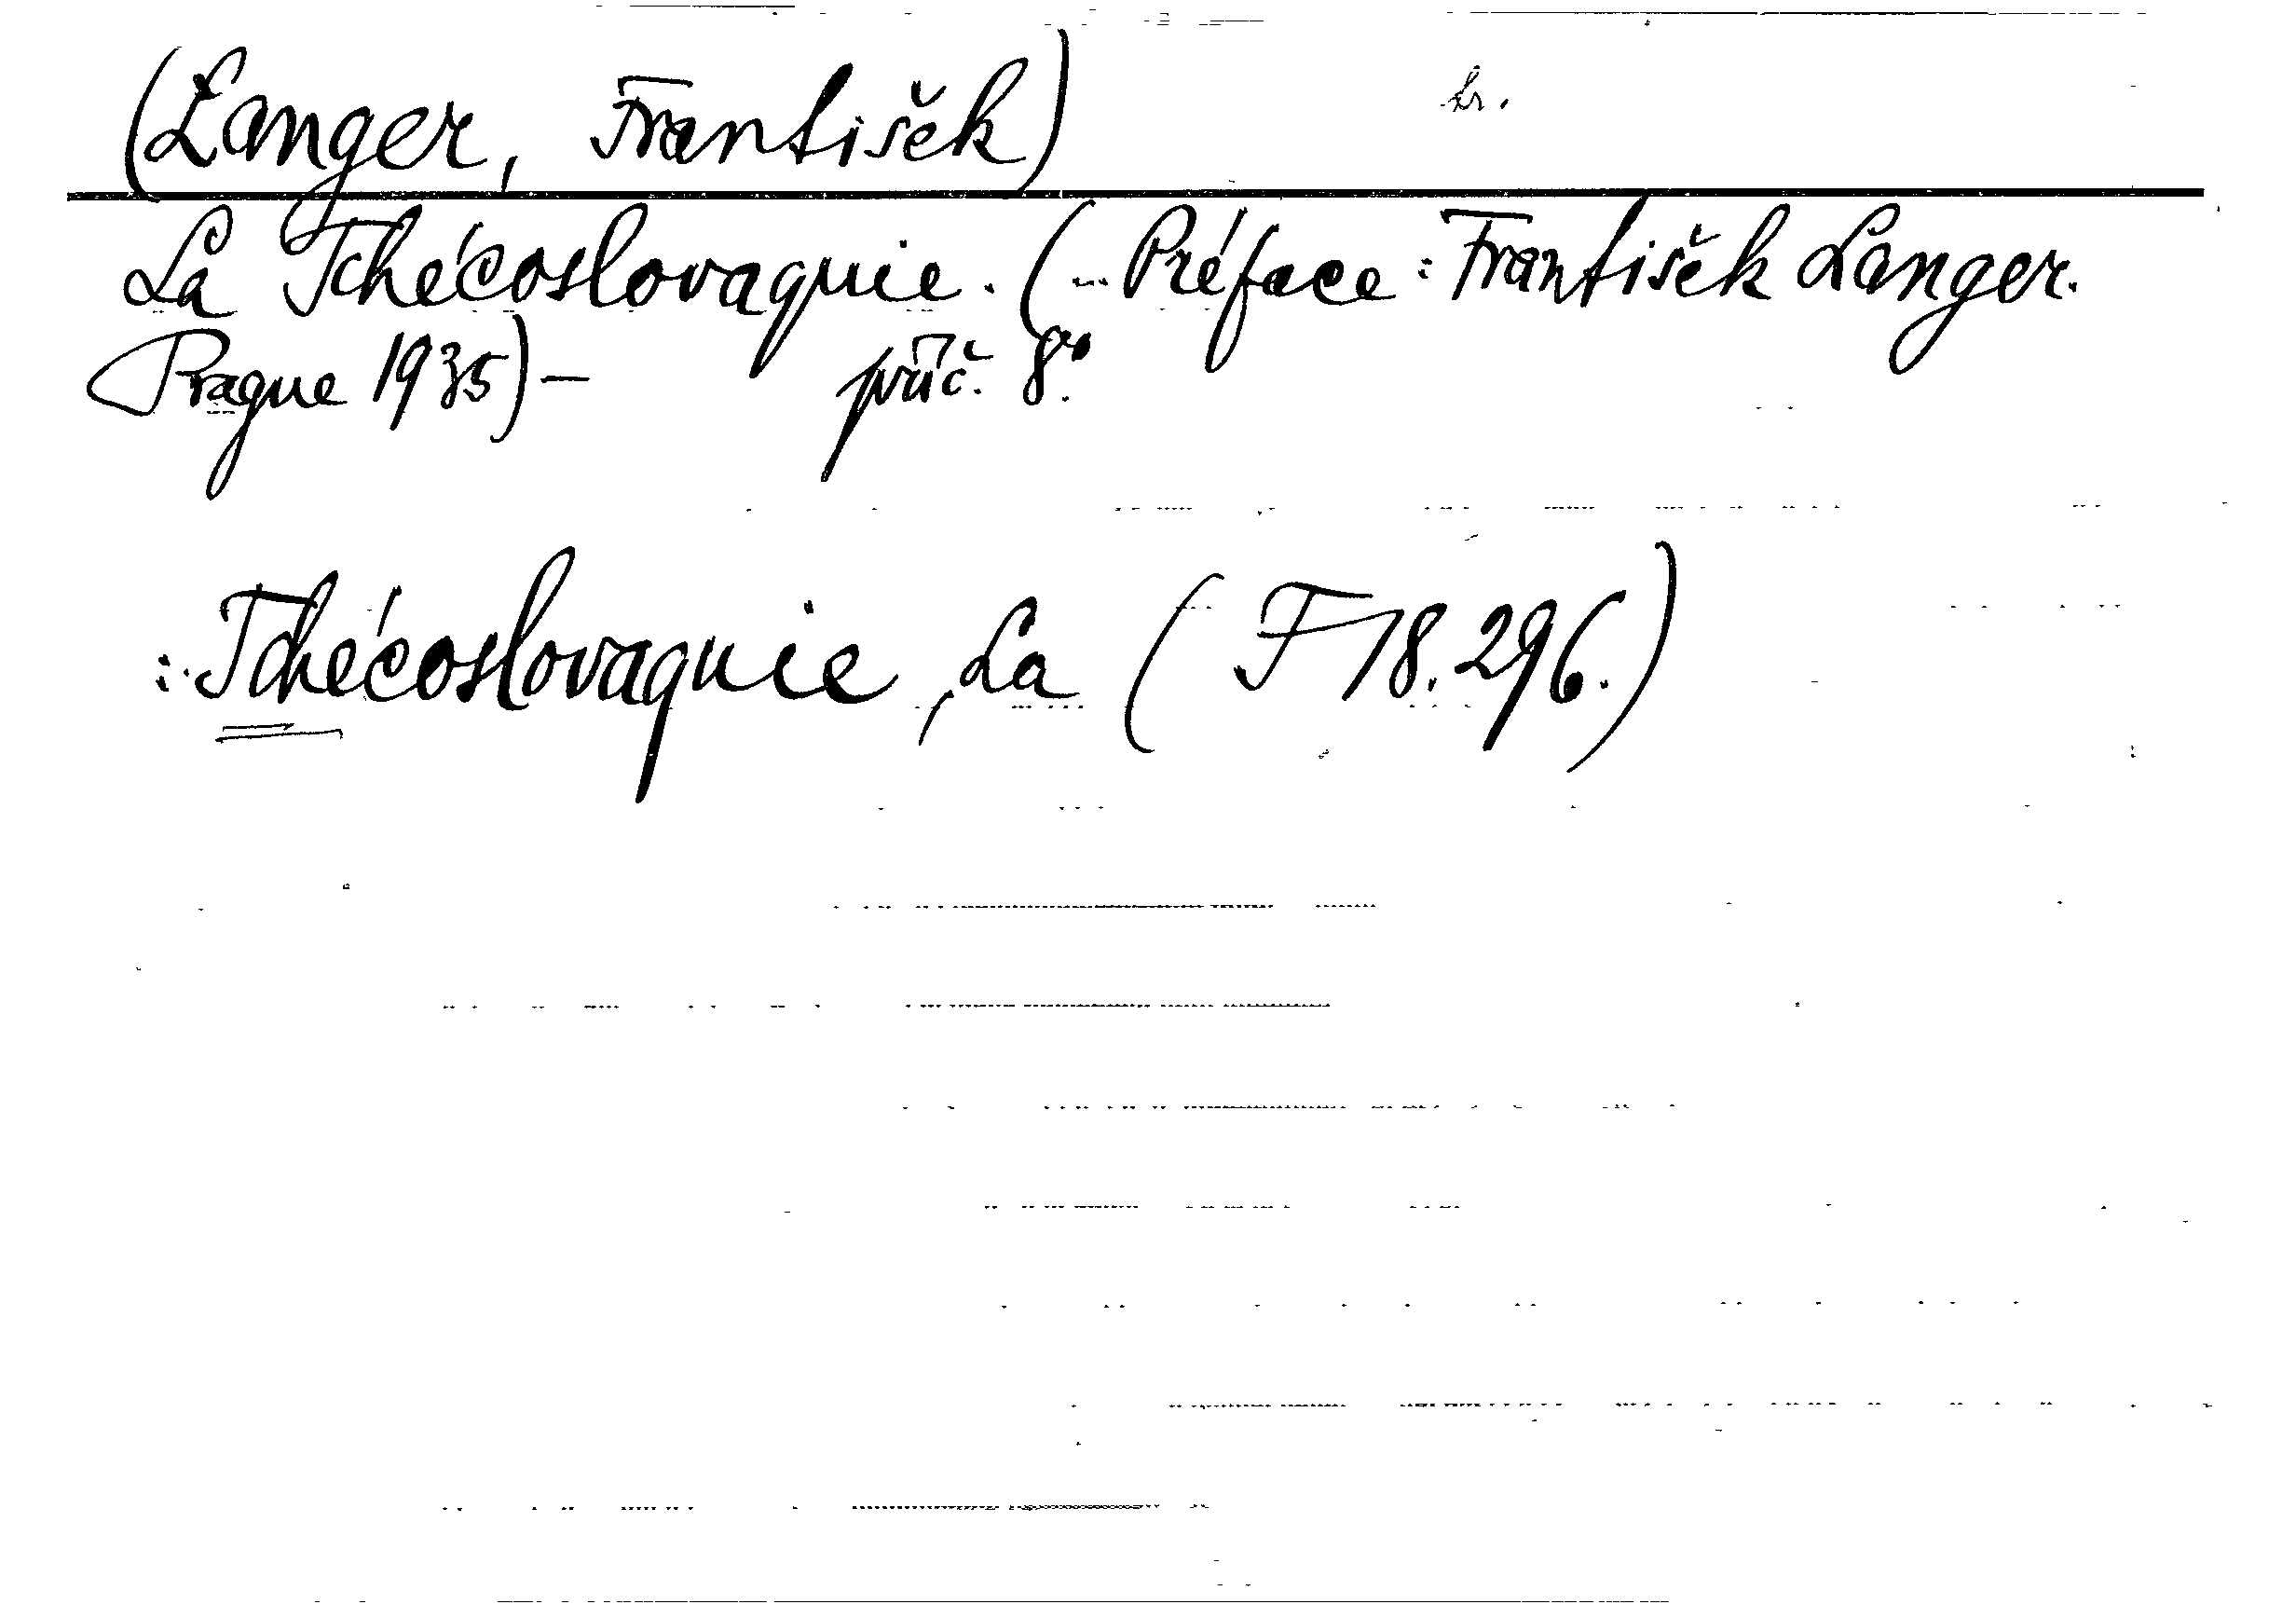 (Langer, František)
La Tchécoslovaquie. (... Préface: František Langer.
Prague 1935) — příč. 8°.
: Tchécoslovaquie, La (F 18.296.)